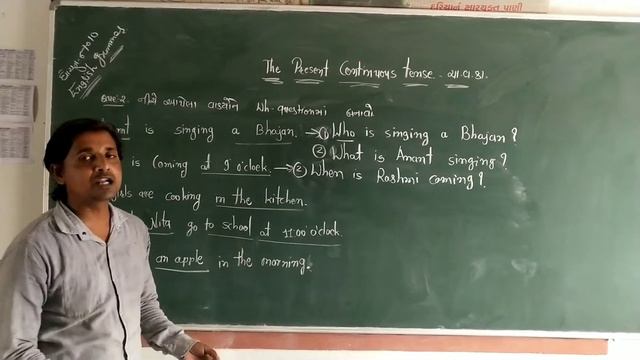 દરિયાનું સારયુક્ત પાણી
ધોરણ ૬ થી ૧૦
English grammar
The Present Continuous tense - ચા.વ.કા.
નીચે આપેલા વાક્યોને Wh-questionમાં બનાવો
is singing a Bhajan. → ① Who is singing a Bhajan?
② What is Anant singing?
is coming at 9 o'clock. → ② When is Rashmi coming?
are cooking in the kitchen.
Nita go to school at 11:00 o'clock.
an apple in the morning.